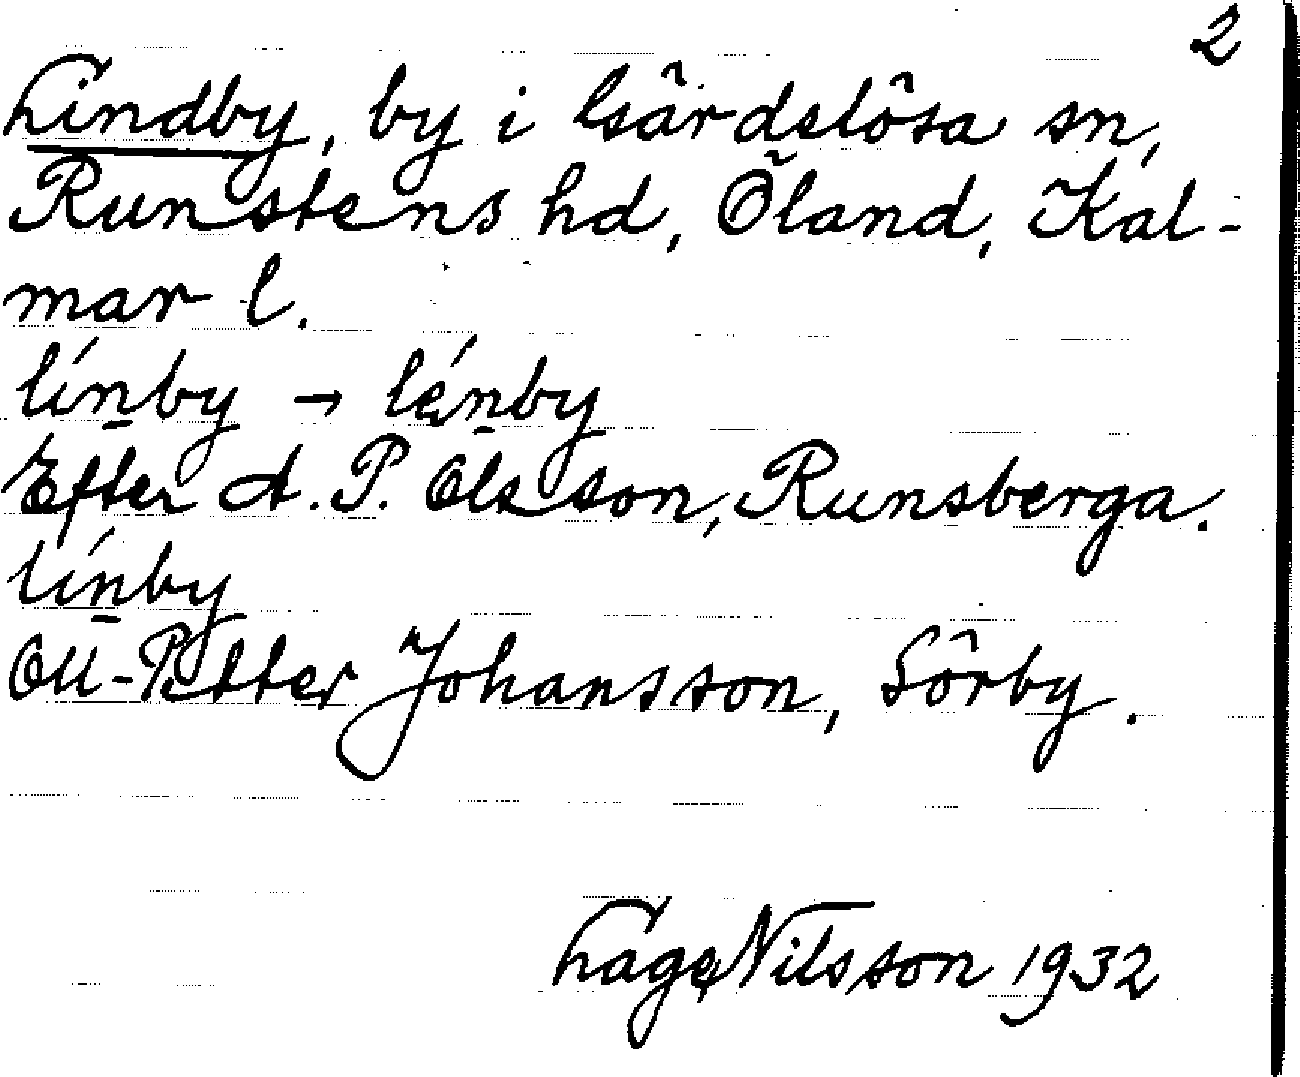 2
Lindby, by i Gärdslösa sn,
Runstens hd, Öland, Kal-
mar l.
línby → lénby
Efter A. P. Olsson, Runsberga.
línby
Oll-Petter Johansson, Sörby.
Lage Nilsson 1932